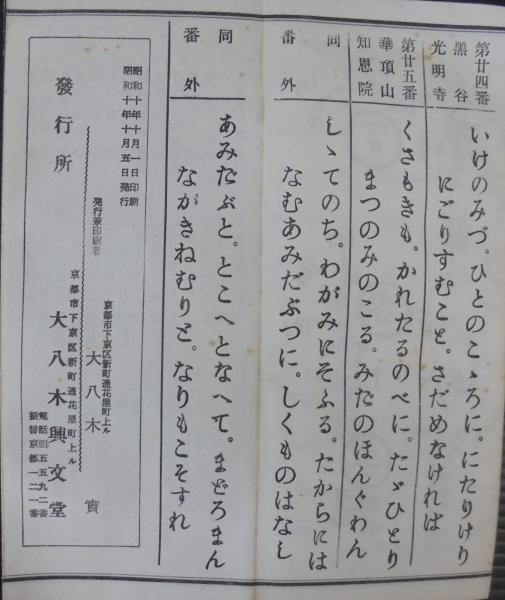 第廿四番
黑谷
光明寺
いけのみづ。ひとのこゝろに。にたりけり
にごりすむこと。さだめなければ
第廿五番
華頂山
知恩院
くさもきも。かれたるのべに。たゞひとり
まつのみのこる。みだのほんぐわん
同
番外
しゝてのち。わがみにそふる。たからには
なむあみだぶつに。しくものはなし
同
番外
あみだぶと。とこへとなへて。まどろまん
ながきねむりと。なりもこそすれ
昭和十年十月一日印刷
昭和十年十月五日発行
発行兼印刷者
京都市下京区新町通花屋町上ル
大八木實
發行所
京都市下京区新町通花屋町上ル
大八木興文堂
電話五五九二番
振替京都一二一番